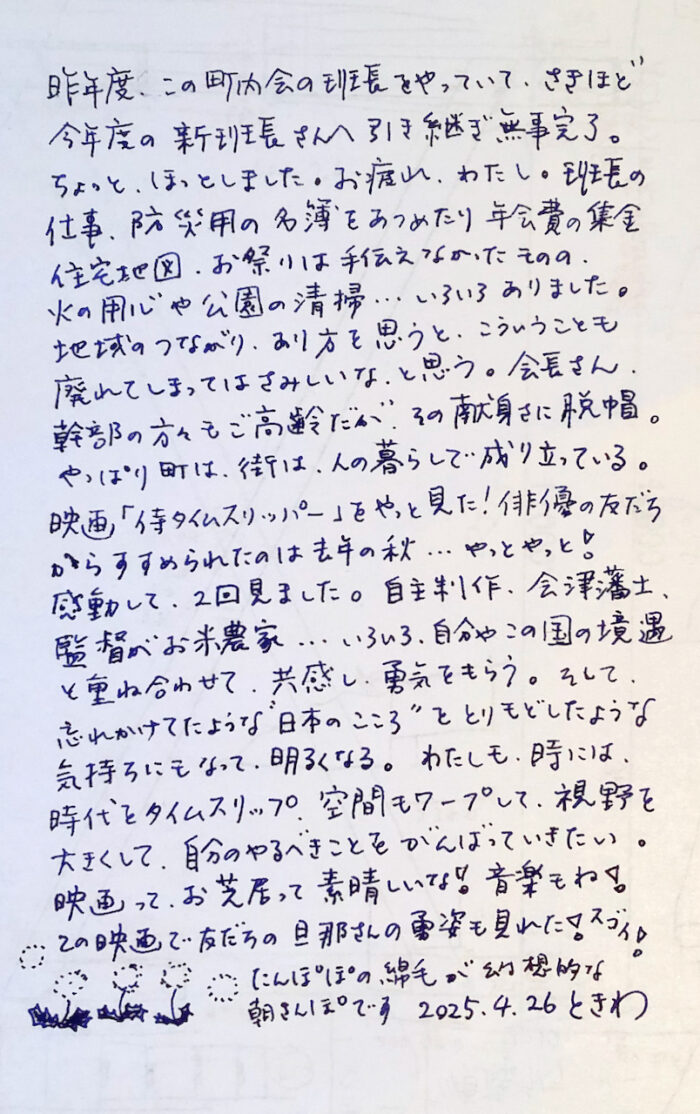 昨年度、この町内会の班長をやっていて、さきほど
今年度の新班長さんへ引き継ぎ無事完了。
ちょっと、ほっとしました。お疲れ、わたし。班長の
仕事、防災用の名簿をあつめたり年会費の集金
住宅地図、お祭りは手伝えなかったものの、
火の用心や公園の清掃…いろいろありました。
地域のつながり、あり方を思うと、こういうことも
廃れてしまってはさみしいな、と思う。会長さん、
幹部の方々もご高齢だが、その献身さに脱帽。
やっぱり町は、街は、人の暮らしで成り立っている。
映画「侍タイムスリッパー」をやっと見た!俳優の友だち
からすすめられたのは去年の秋…やっとやっと!
感動して、2回見ました。自主制作、会津藩士、
監督がお米農家…いろいろ、自分やこの国の境遇
と重ね合わせて、共感し、勇気をもらう。そして、
忘れかけてたような"日本のこころ"をとりもどしたような
気持ちにもなって、明るくなる。わたしも、時には、
時代をタイムスリップ、空間もワープして、視野を
大きくして、自分のやるべきことをがんばっていきたい。
映画って、お芝居って素晴しいな!音楽もね!
この映画で友だちの旦那さんの勇姿も見れた!スゴイ!
たんぽぽの綿毛が幻想的な
朝さんぽです 2025.4.26 ときわ